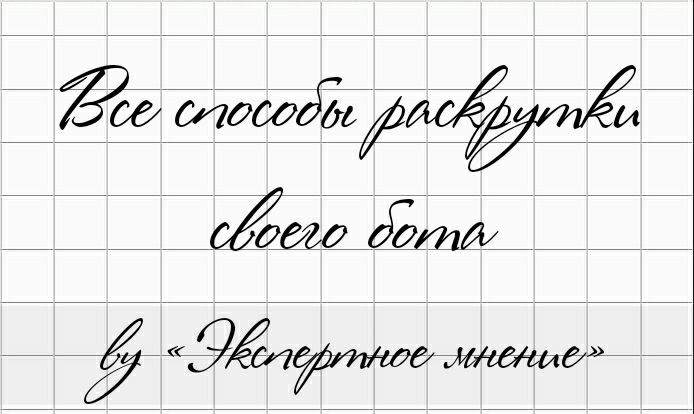 Все способы раскрутки
своего бота
by «Экспертное мнение»